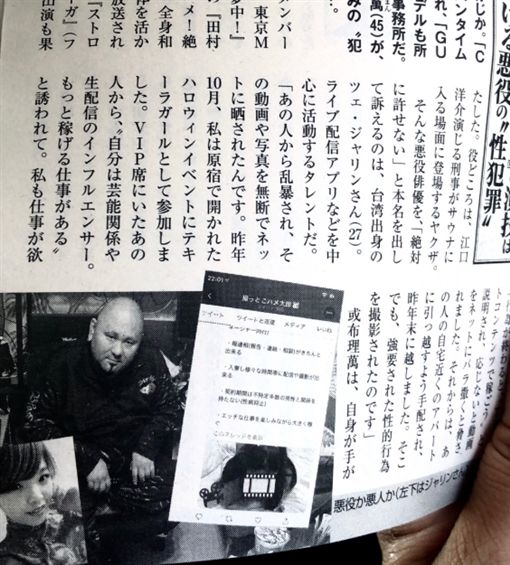 ける悪役の〝性犯罪〟
たした。役どころは、江口
洋介演じる刑事がサウナに
入る場面に登場するヤクザ。
そんな悪役俳優を「絶対
に許せない」と本名を出し
て訴えるのは、台湾出身の
ツェ・ジャリンさん(27)。
ライブ配信アプリなどを中
心に活動するタレントだ。
「あの人から乱暴され、そ
の動画や写真を無断でネッ
トに晒されたんです。昨年
10月、私は原宿で開かれた
ハロウィンイベントにテキ
ーラガールとして参加しま
した。VIP席にいたあの
人から、〝自分は芸能関係や
生配信のインフルエンサー。
もっと稼げる仕事がある〟
と誘われて。私も仕事が欲
説明され、応じないと動画
をネットにバラ撒くと脅さ
れました。それからは、あ
の人の自宅近くのアパート
に引っ越すよう手配され、
昨年末に越しました。そこ
でも、強要された性的行為
を撮影されたのです」
或布理萬は、自身が手が
じか。「C
ンタイム
れ、「GU
デルも所
事務所だ。
萬(45)が、
みの〝犯
ンバー
東京M
夢中!』
『田村
メ!絶
全身和
体を活か
放送され
『ストロ
ーガ』(フ
出演も果
22:01
ツイート
ツイートと返信
メディア
いいね
・報連相(報告・連絡・相談)がきちんと
出来る
・入寮し様々な時間帯に配信や撮影が出
来る
・契約期間は不特定多数の男性と関係を
持たない(性病抑止)
・エッチな仕事を楽しみながら大きく稼
ぐ
このスレッドを表示
悪役か悪人か(左下はジャリンさん